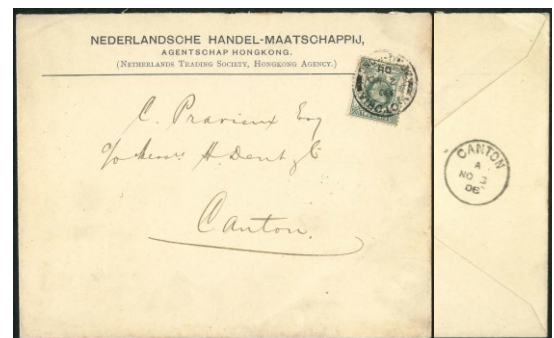 NEDERLANDSCHE HANDEL-MAATSCHAPPIJ,
AGENTSCHAP HONGKONG.
(NETHERLANDS TRADING SOCIETY, HONGKONG AGENCY.)
VICTORIA
C. Pravieux Esq
c/o Messrs H. Dent & Co
Canton.
CANTON
A
NO 2
06